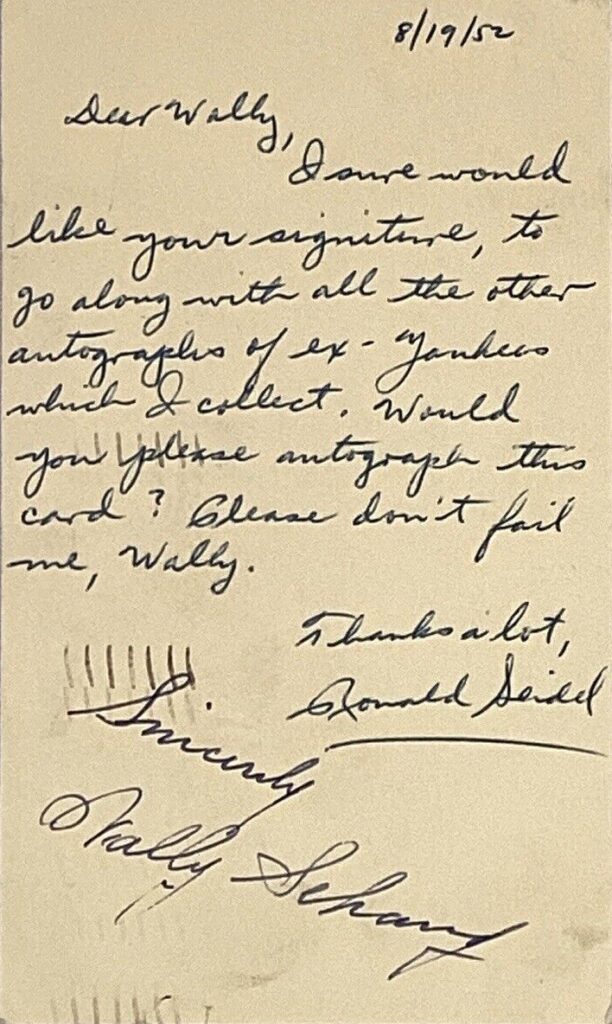 8/19/52
Dear Wally,
I sure would
like your signiture, to
go along with all the other
autographs of ex-Yankees
which I collect. Would
you please autograph this
card? Please don't fail
me, Wally.
Thanks a lot,
Ronald Seidel
Sincerly
Wally Schang